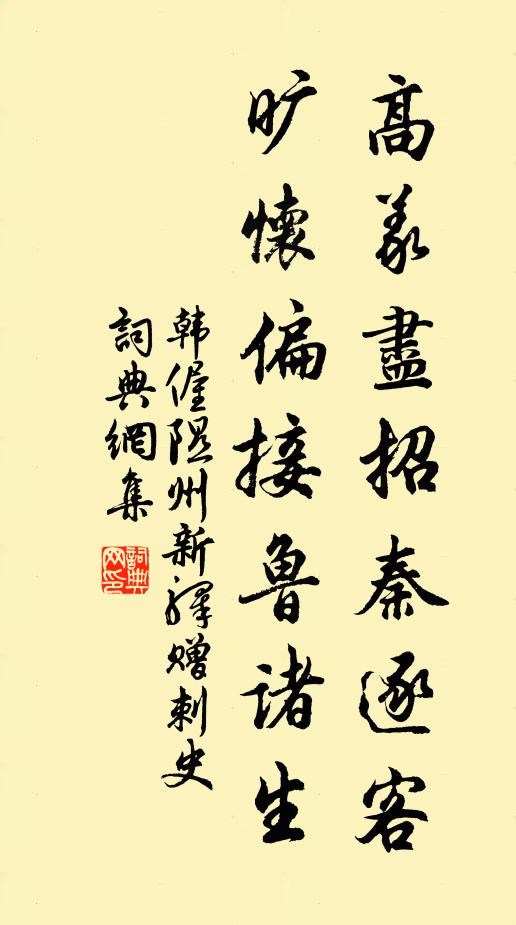 高義盡招秦逐客
旷懷偏接魯諸生
韩偓隰州新驛赠刺史
詞典網集
詞典网印